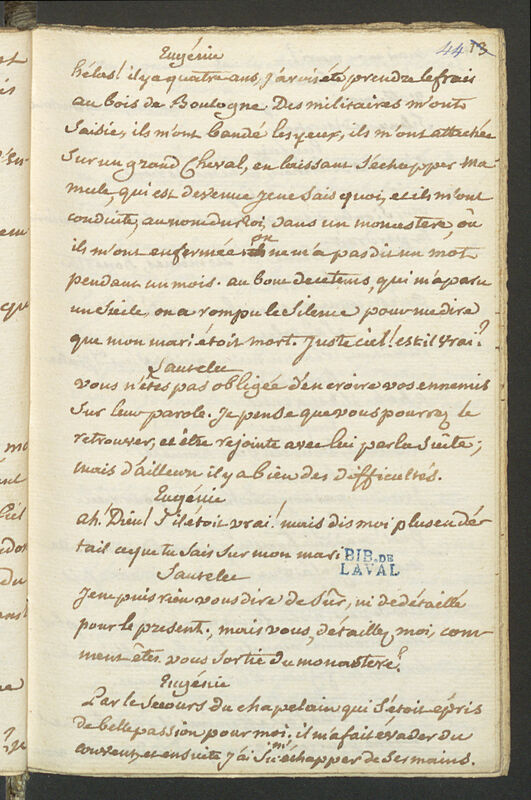 Eugénie
44 13
hélas! il y a quatre ans, j'avois été prendre le frais
au bois de Boulogne. Des militaires m'ont
saisie, ils m'ont bandé les yeux, ils m'ont attachée
sur un grand Cheval, en laissant s'échapper ma
mule, qui est devenue je ne sais quoi, et ils m'ont
conduite, au nom du Roi, dans un monastere, où
ils m'ont enfermée on ne m'a pas dit un mot
pendant un mois. au bout de ce tems, qui m'a paru
un siécle, on a rompu le silence pour me dire
que mon mari étoit mort. juste ciel! est-il vrai?
vous n'êtes pas obligée d'en croire vos ennemis
sur leur parole. Je pense que vous pourrez le
retrouver, et être rejointe avec lui par la suite;
mais d'ailleurs il y a bien des difficultés.
Eugénie
ah! Dieu! S'il étoit vrai! mais dis moi plus en dé-
tail ce que tu sais sur mon mari
BIB. DE
LAVAL
Je ne puis rien vous dire de sûr, ni de détaillé
pour le present, mais vous, détaillez moi, com-
ment êtes-vous sortie du monastere?
Eugénie
Par le secours du chapelain qui s'étoit épris
de belle passion pour moi. il m'a fait évader du
couvent, et ensuite j'ai su m'échapper de ses mains.